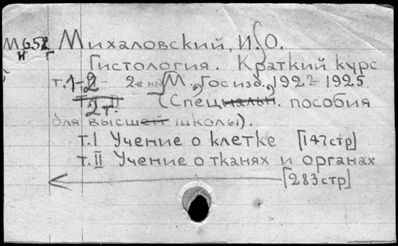 М 652 Михаловский, И. О.
н г
Гистология. Краткий курс
т. 1-2 - 2е изд. М. Гос изд. 1922-1925.
2 т. (Специальн. пособия
для высшей школы).
т. I Учение о клетке [147 стр]
т. II Учение о тканях и органах
[283 стр]